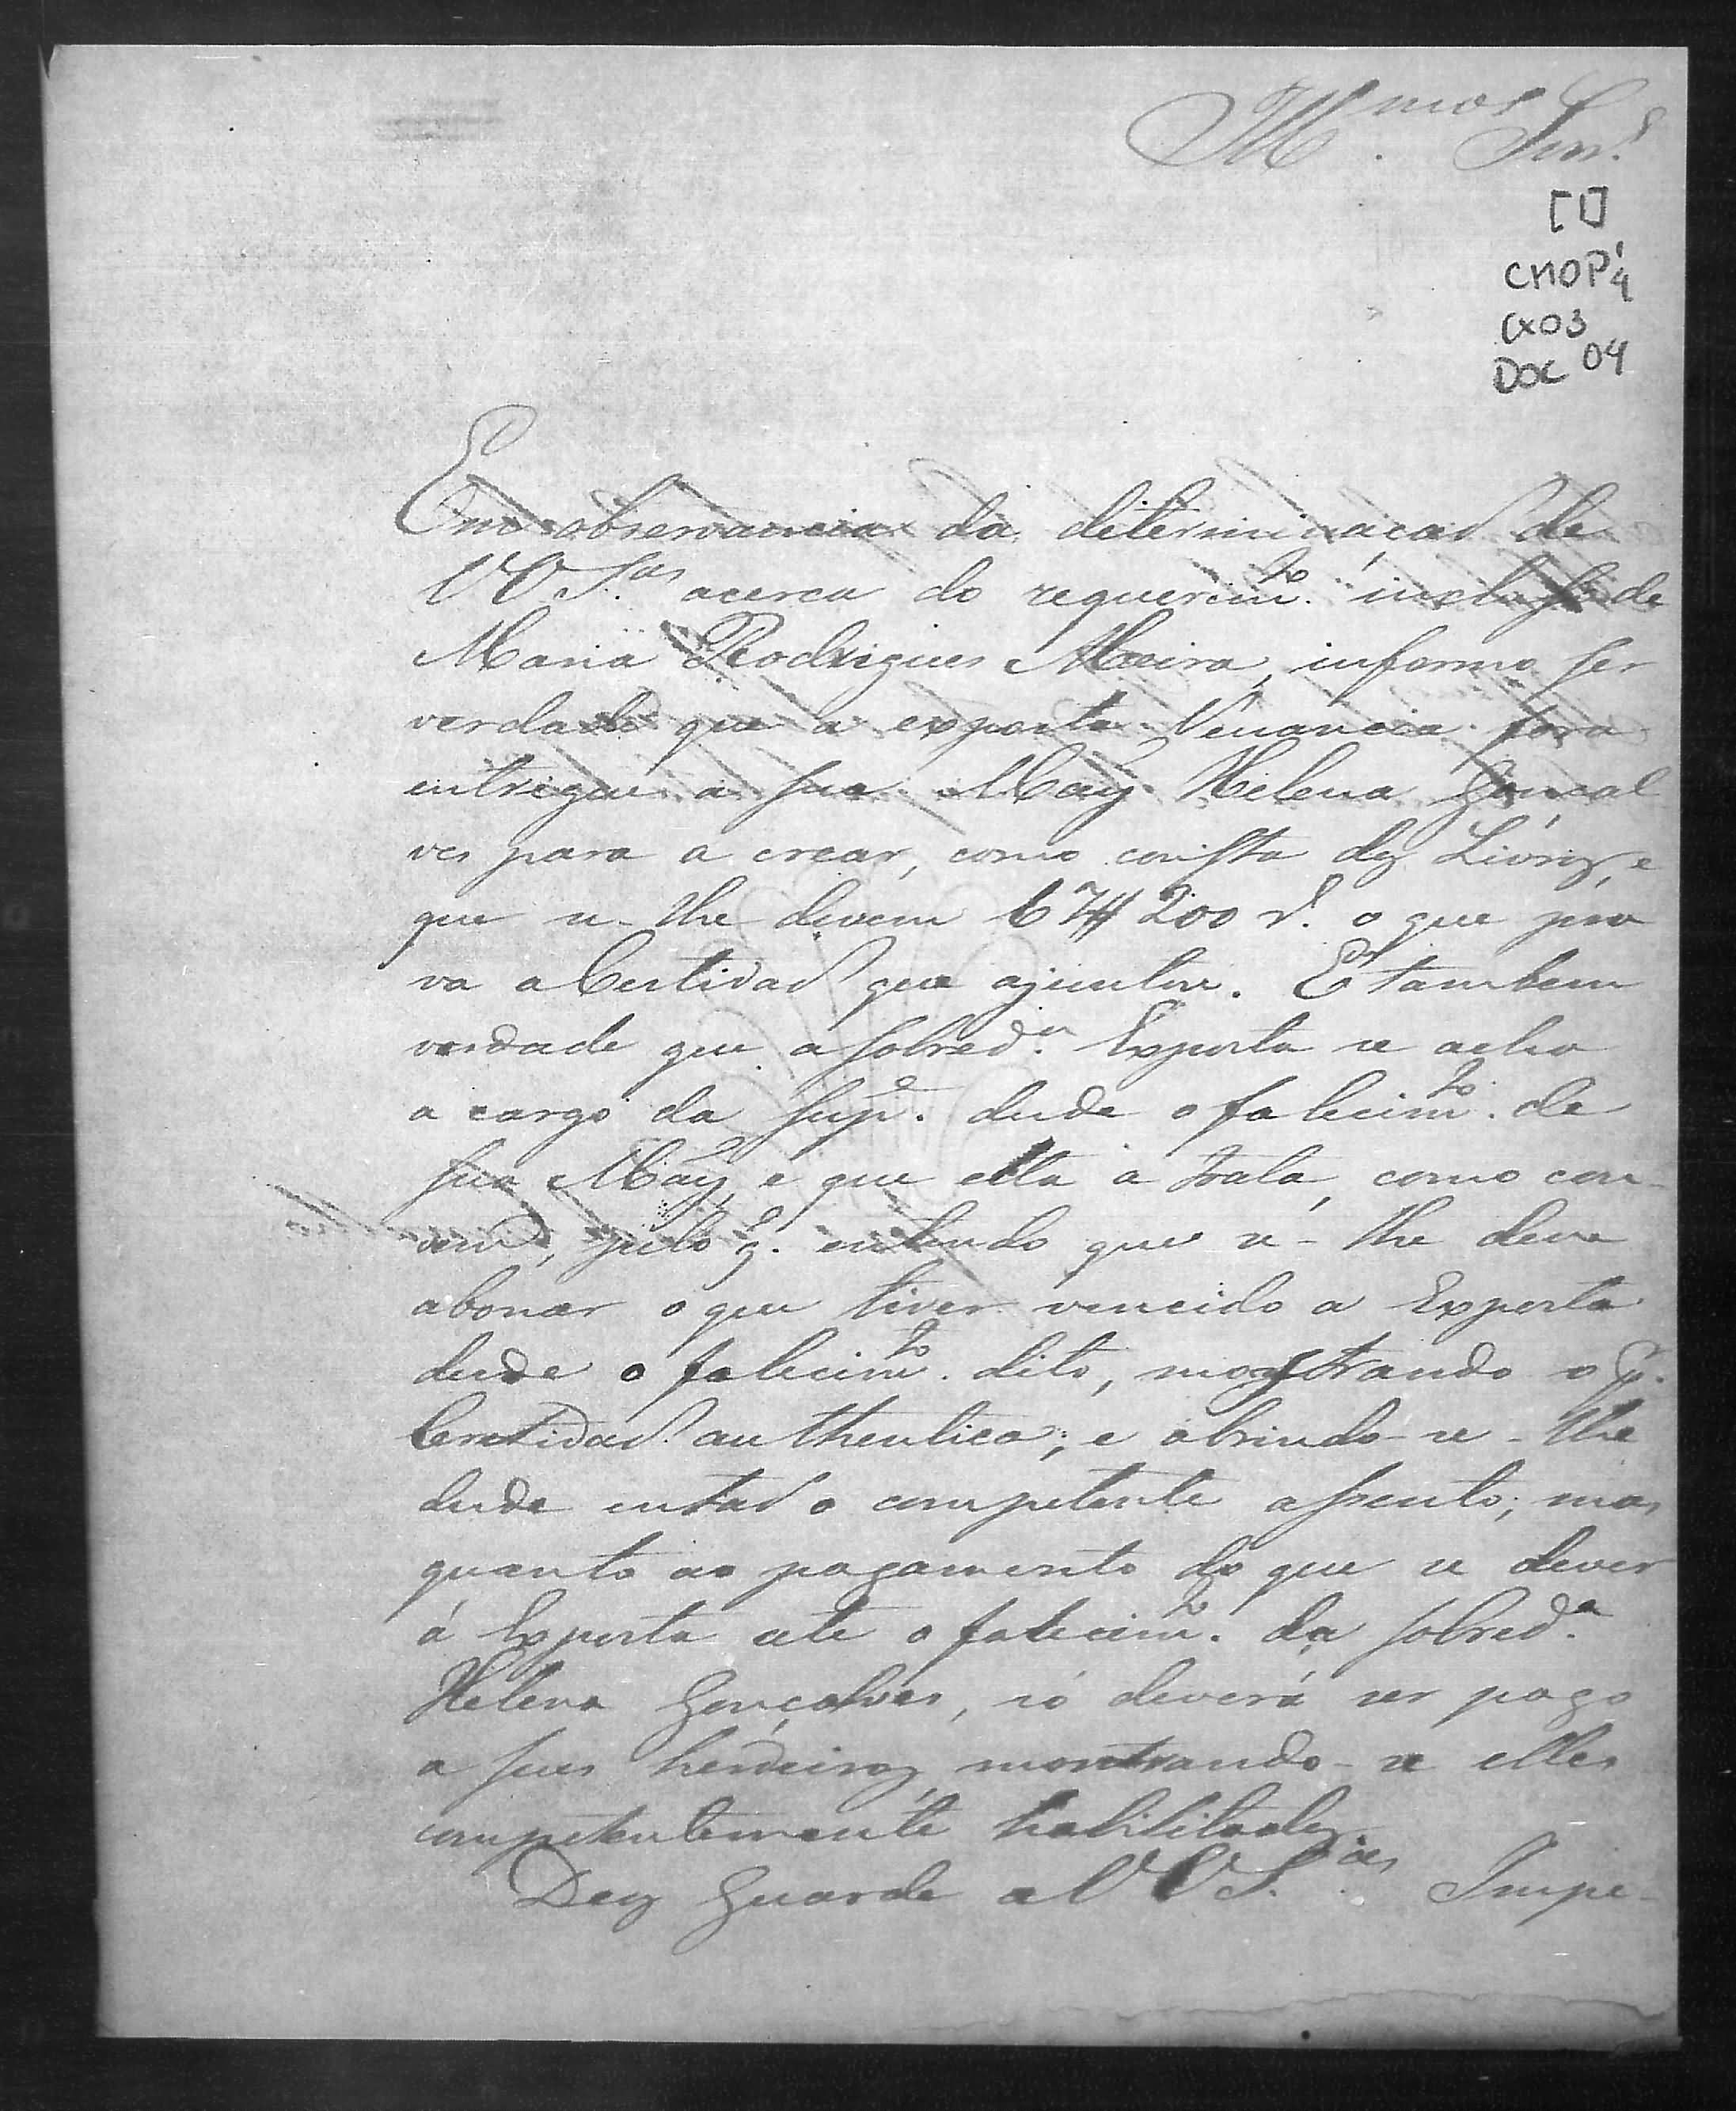 Ill.mos Snr.s
[1]
CMOP
Cx03
DOC 04
Em observancia da determinaçaõ de
VV S.as acerca do requerim.to incluso de
Maria Rodrigues Moira, informo ser
verdade que a exposta Venancia fora
entregue a sua May Helena Gonçal
ves para a crear, como consta dos Livros, e
que se-lhe devem 67#200 r.s o que pro
va a Certidaõ que ajuntou. E' tambem
verdade que a sobred.a Exposta se acha
a cargo da Sup.e desde o falecim.to de
sua May, e que ella a trata, como con-
vem, pelo q. entendo que se-lhe deve
abonar o que tiver vencido a Exposta
desde o falecim.to dito, mostrando o p.r
Certidaõ authentica; e abrindo-se-lhe
desde entaõ o competente assento; mas
quanto ao pagamento do que se dever
á Exposta até o falecim.to da sobred.a
Helena Gonçalves, só deverá ser pago
a seus herdeiros, mostrando-se elles
competentemente habilitados.
Deos Guarde a VV S.as Impe-